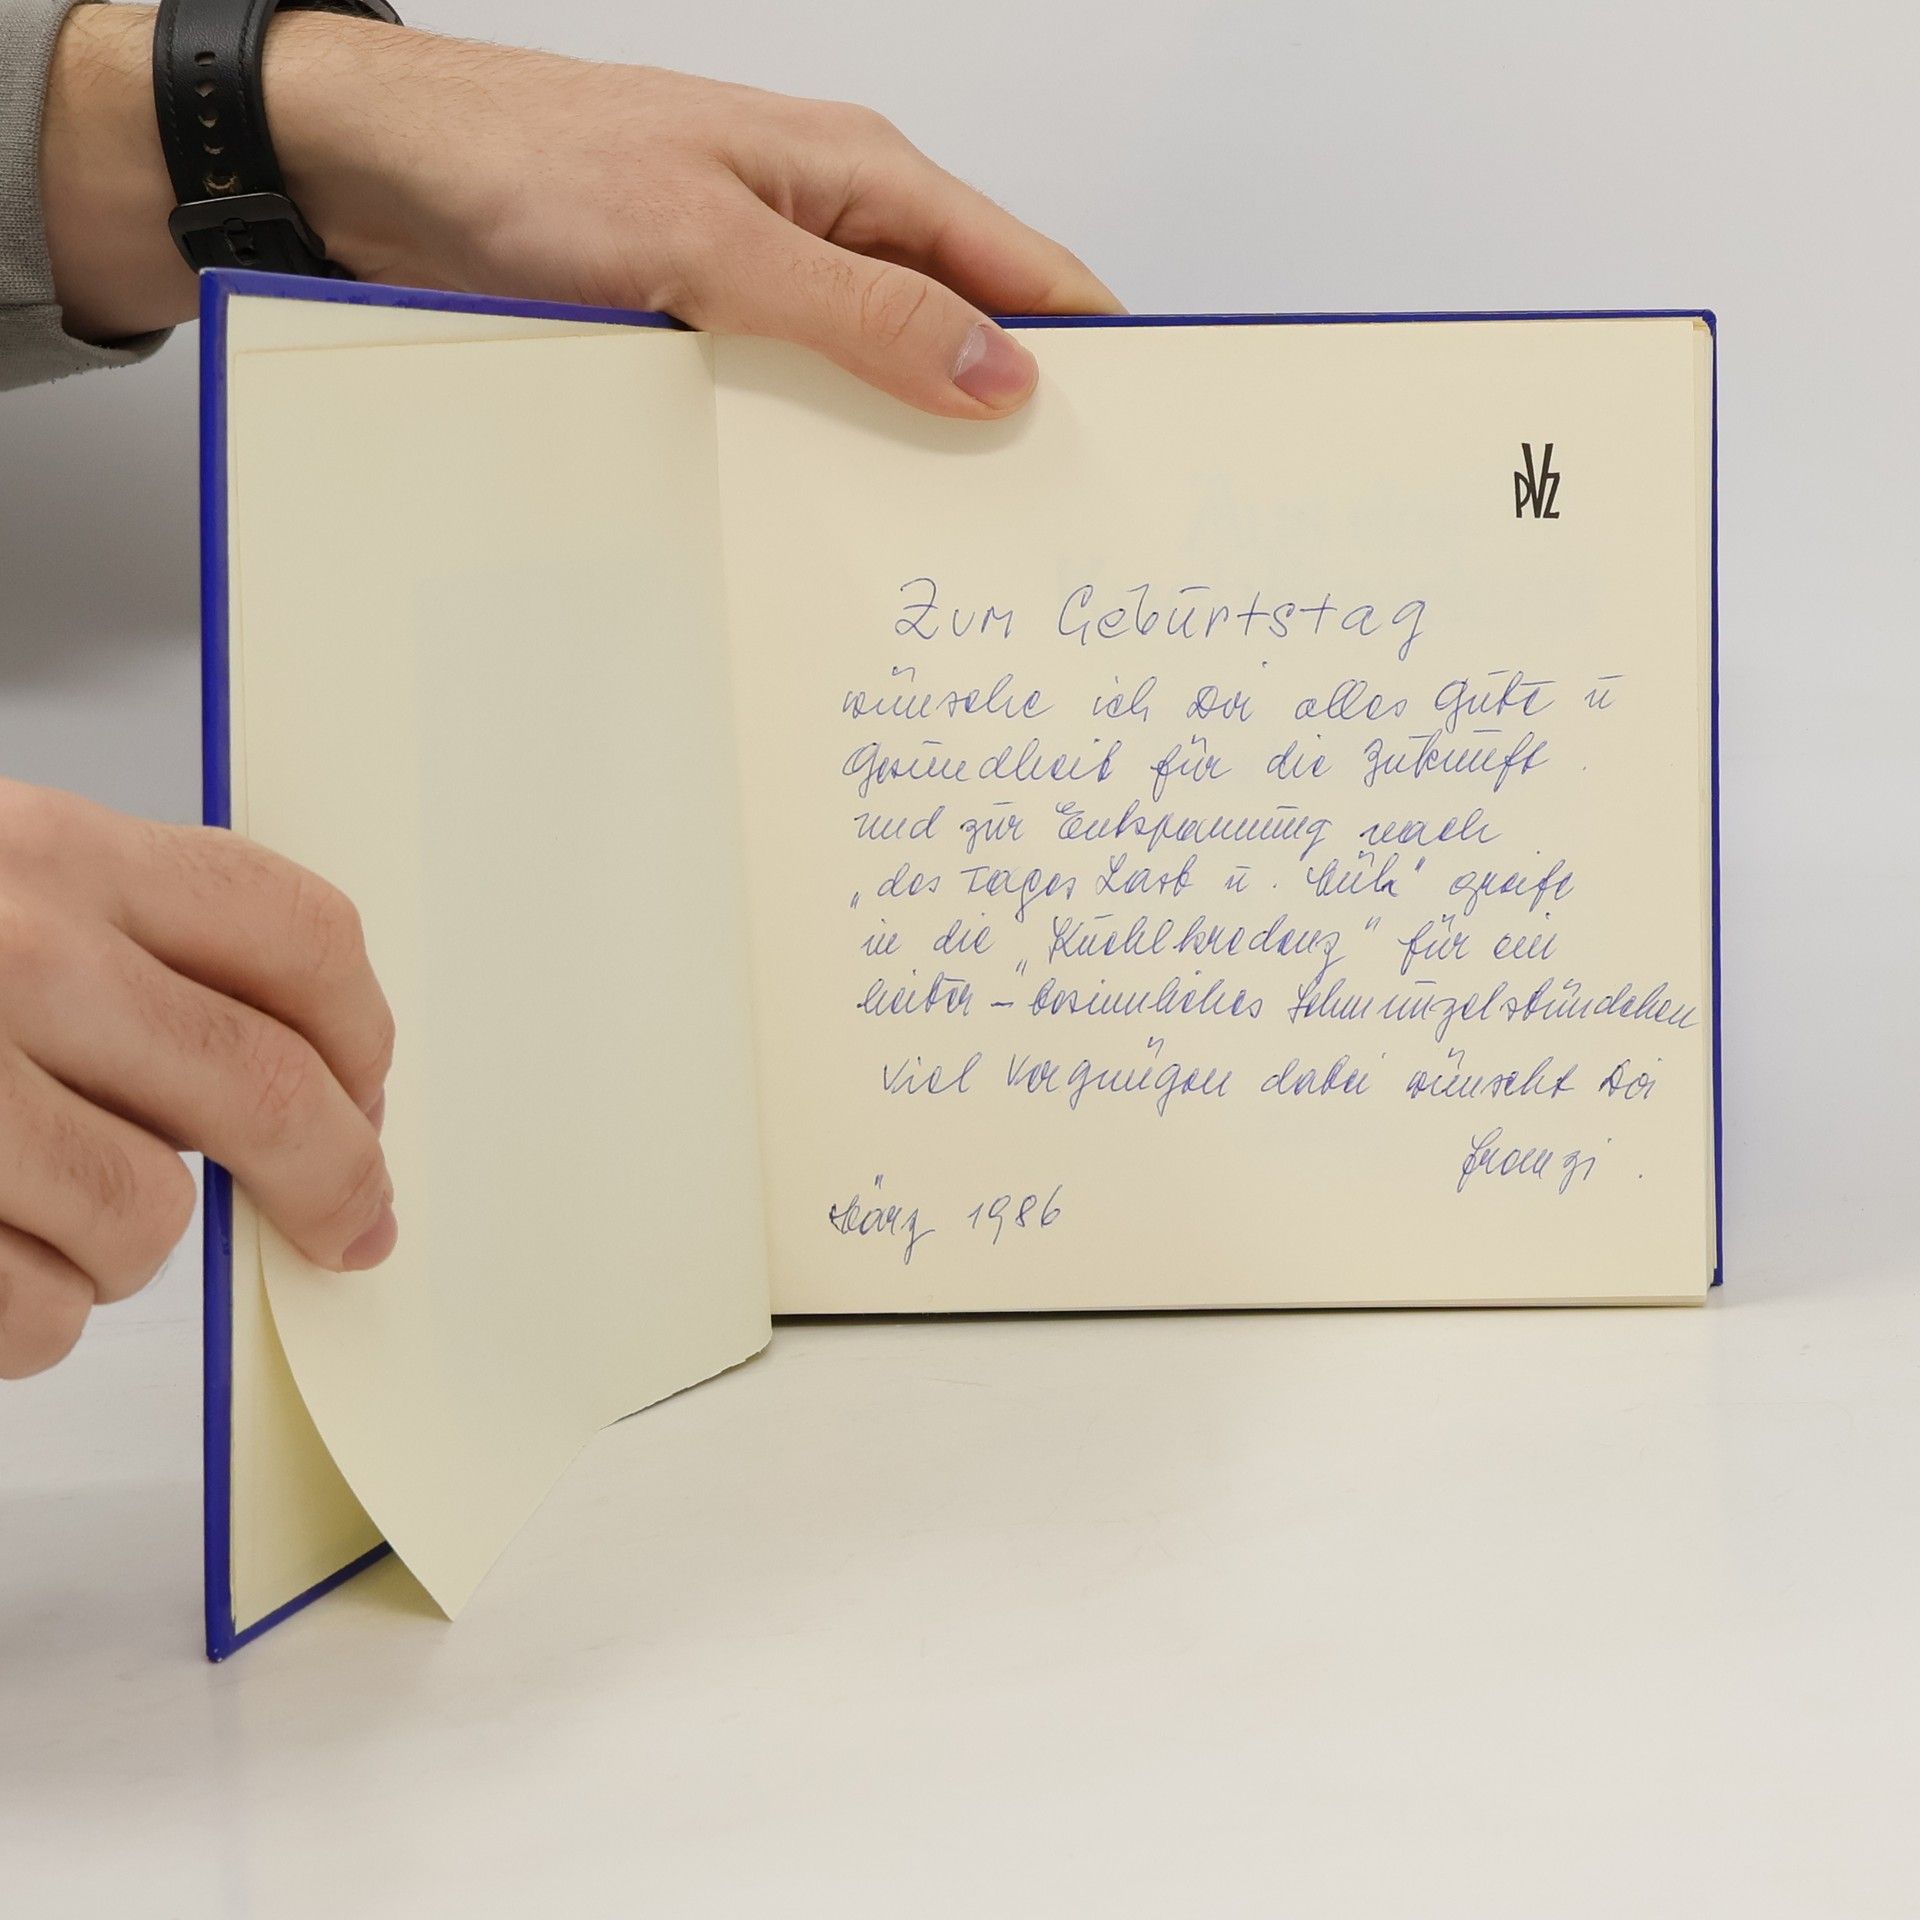 PVZ
Zum Geburtstag
wünsche ich Dir alles Gute u
Gesundheit für die Zukunft.
und zur Entspannung nach
„des Tages Last u. Müh" greife
in die „Kuchlkredenz" für ein
heiter – besinnliches Schmunzelstündchen
Viel Vergnügen dabei wünscht Dir
Franzi.
März 1986